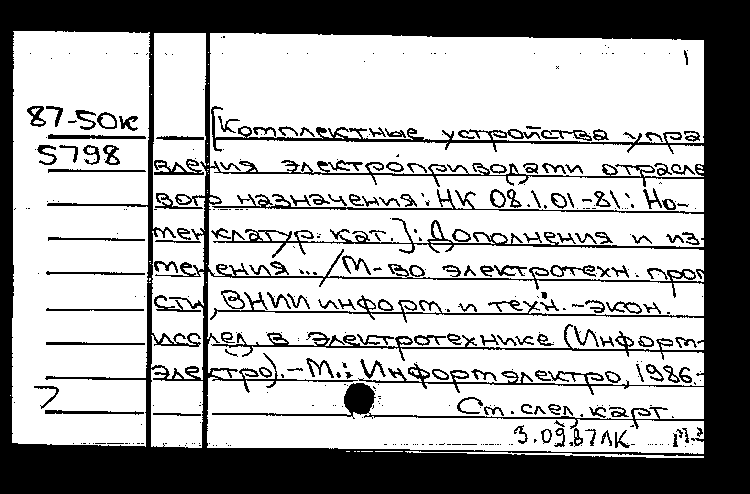 1
87-50к
5798
[Комплектные устройства упра-
вления электроприводами отрасле
вого назначения: НК 08.1.01-81: Но-
менклатур. кат.]: Дополнения и из-
менения... / М-во электротехн. пром
сти, ВНИИ информ. и техн.-экон.
исслед. в электротехнике (Информ-
электро).-М.: Информэлектро, 1986.-
7
См. след. карт.
3.09.87 ЛК